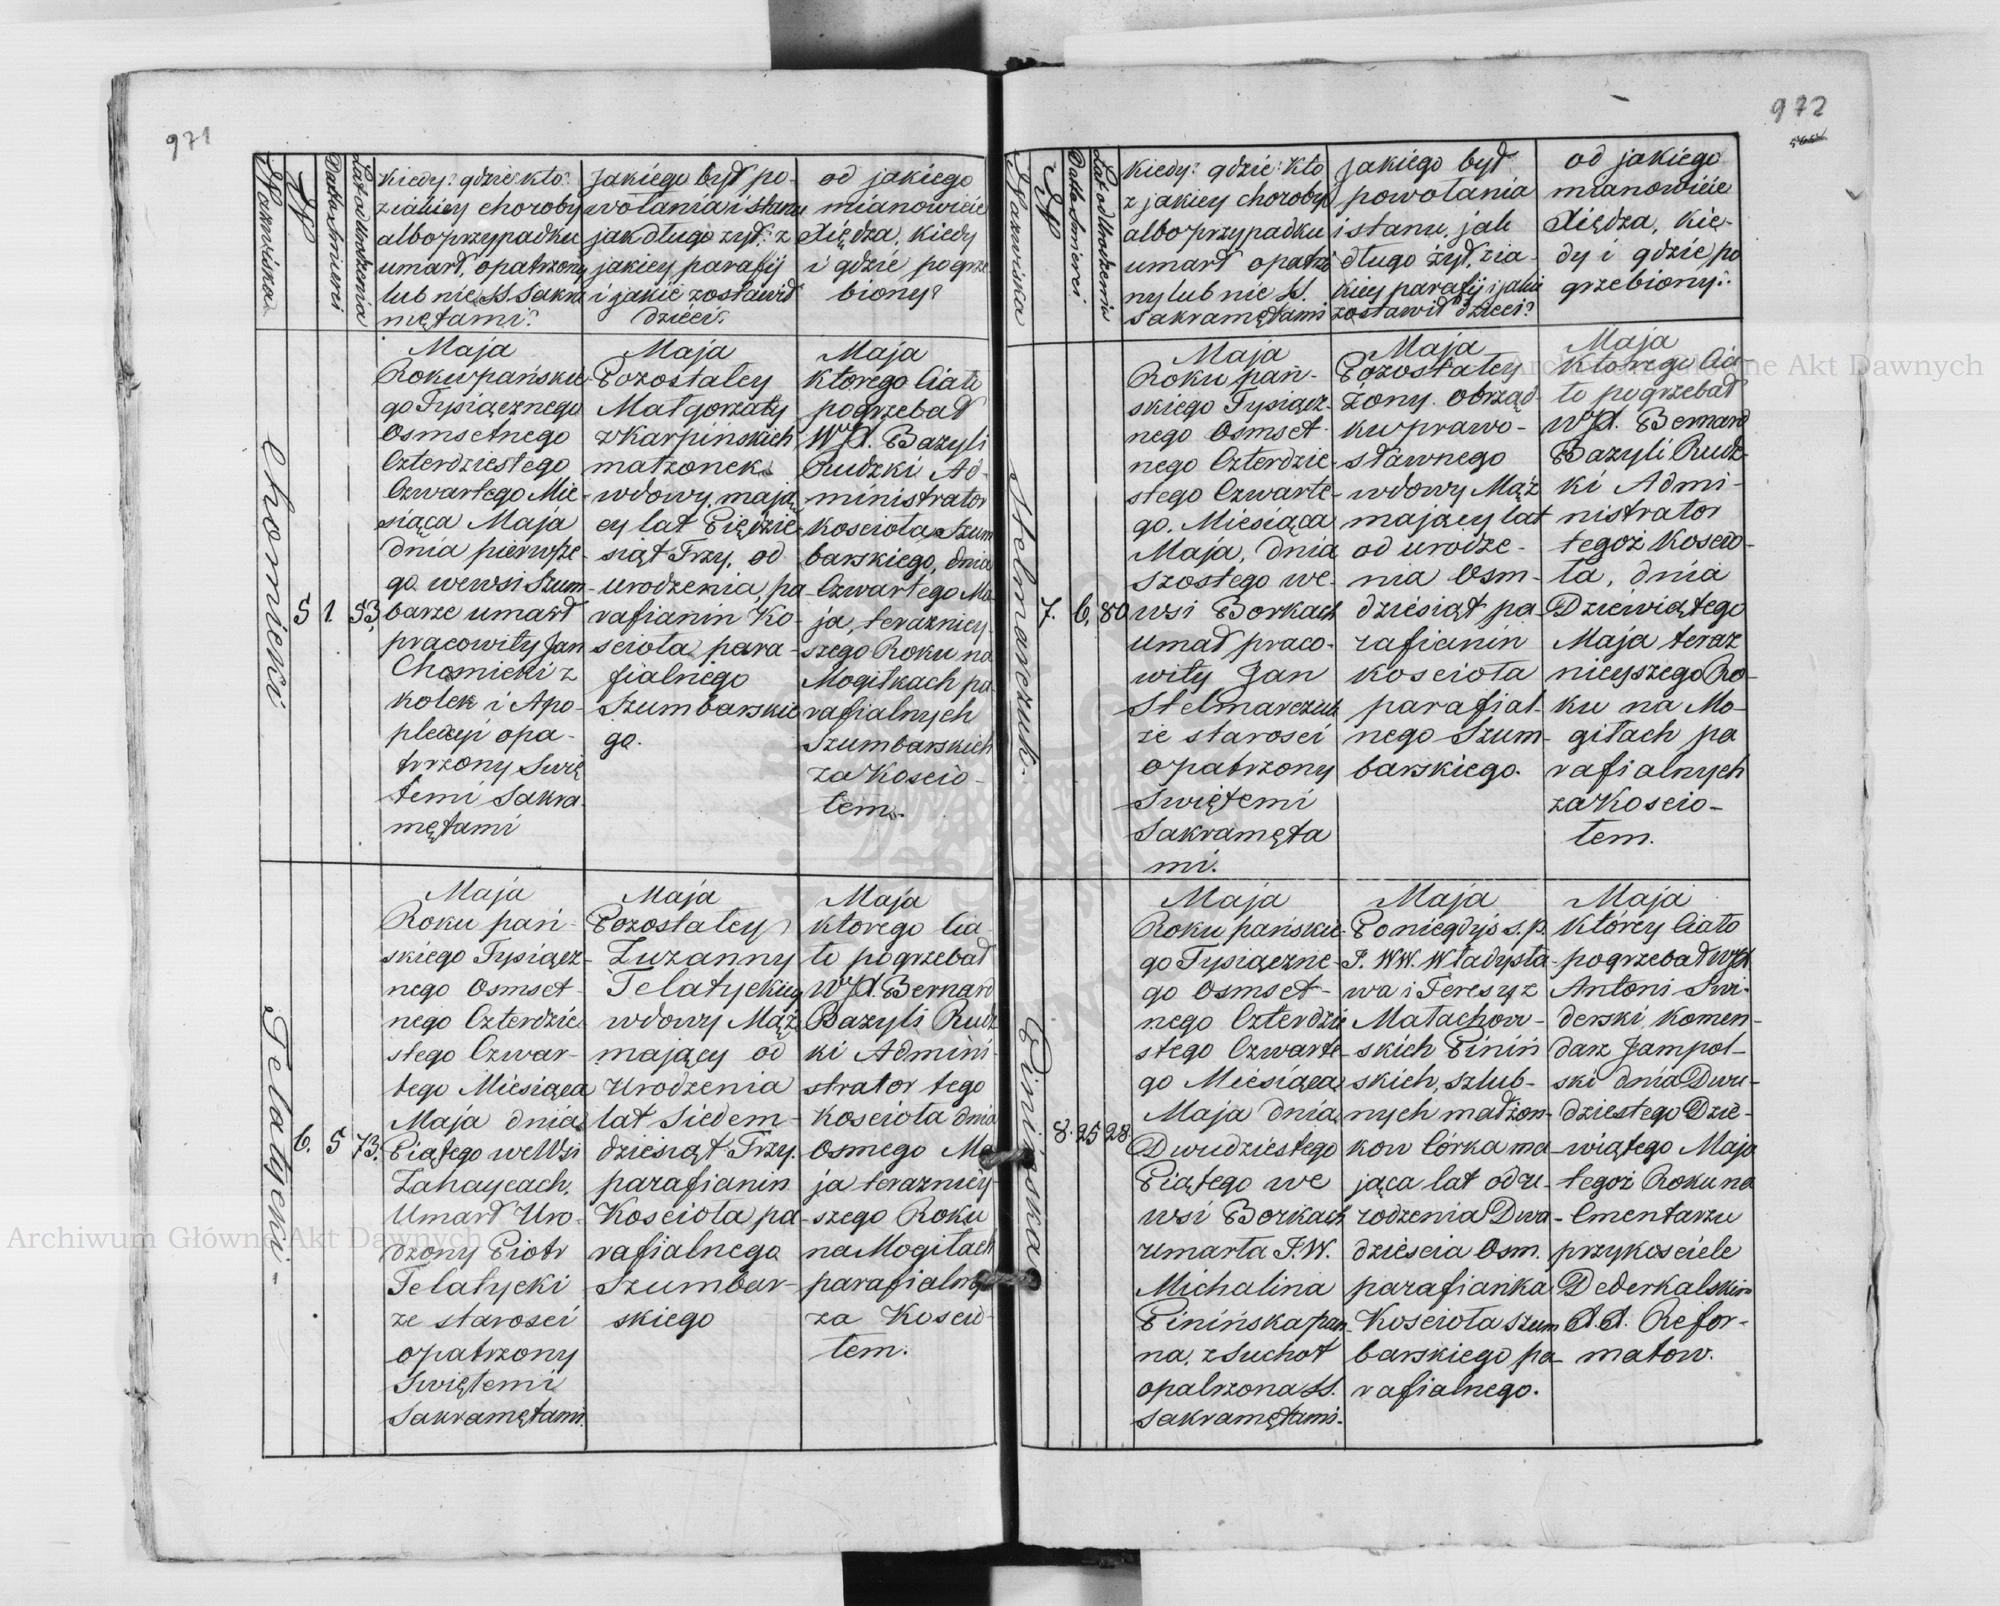 971
Nazwiska
N
Datta Smierci
Lat od Urodzenia
Kiedy? gdzie? kto?
z jakiey choroby
albo przypadku
umarł, opatrzony
lub nie SS Sakra
mętami?
Jakiego był po-
wołania i stanu
jak długo żył? z
jakiey parafij
i jakie zostawił
dzieci?
od jakiego
mianowicie
Xiędza, kiedy
i gdzie pogrze
biony?
Chomicki
5
1.
53.
Maja
Roku pańskie
go Tysiącznego
Osmsetnego
Czterdziestego
Czwartego Mie-
siąca Maja
dnia pierwsze-
go we wsi Szum-
barze umarł
pracowity Jan
Chomicki z
kolek i Apo-
plexyi opa-
trzony Swię
temi Sakra
mętami
Maja
Pozostałey
Małgorzaty
z Karpińskich
małżonek
wdowy, mają
cy lat Pięćdzie-
siąt Trzy, od
urodzenia, pa
rafianin Ko-
scioła para-
fialnego
Szumbarskie
go.
Maja
którego Ciało
pogrzebał
WJX. Bazyli
Rudzki Ad-
ministrator
kościoła Szum
barskiego, dnia
Czwartego Ma-
ja, teraźniey-
szego Roku na
Mogiłkach pa-
rafialnych
Szumbarskich
za Koscio-
łem.
Telatycki
6.
5
73.
Maja
Roku pań-
skiego Tysiącz-
nego Osmset-
nego Czterdzie
stego Czwar-
tego Miesiąca
Maja dnia
Piątego we Wsi
Zahaycach,
Umarł Uro-
dzony Piotr
Telatycki
ze starosci
opatrzony
Swiętemi
Sakramętami.
Maja
Pozostałey
Zuzanny
Telatyckiey
wdowy Mąż
mający od
Urodzenia
lat Siedem-
dziesiąt Trzy.
parafianin
Kościoła pa-
rafialnego
Szumbar-
skiego
Maja
ktorego Cia-
ło pogrzebał
WJX. Bernard
Bazyli Rudz
ki Admini-
strator tego
Kościoła dnia
Osmego Ma
ja teraźniey-
szego Roku
na Mogiłach
parafialny
za Koscio-
łem.
972
Nazwiska
N
Datta Smierci
Lat od Urodzenia
Kiedy? gdzie? kto
z jakiey choroby
albo przypadku
umarł opatrzo
ny lub nie SS.
Sakramętami
Jakiego był
powołania
i stanu, jak
długo żył, z ja-
kiey parafij i jakie
zostawił dzieci?
od jakiego
mianowicie
Xiędza, kie-
dy i gdzie po
grzebiony?
Stelmarczuk.
7.
6.
80
Maja
Roku pań-
skiego Tysiącz-
nego Osmset-
nego Czterdzie-
stego Czwarte-
go. Miesiąca
Maja, dnia
szostego we-
wsi Borkach
umarł praco-
wity Jan
Stelmarczuk
ze starosci
opatrzony
Swiętemi
Sakramęta
mi.
Maja
Pozostałey
Żony obrząd-
ku prawo-
sławnego
wdowy Mąż
mający lat
od urodze-
nia Osm-
dziesiąt pa-
rafianin
kościoła
parafial-
nego Szum-
barskiego.
Maja
Ktorego Cia-
ło pogrzebał
WJX. Bernard
Bazyli Rudz-
ki Admi-
nistrator
tegoż Koscio-
ła, dnia
Dziewiątego
Maja teraz
nieyszego Ro-
ku na Mo-
giłach pa
rafialnych
za Koscio-
łem.
Pinińska
8.
25
28.
Maja
Roku pańskie-
go Tysiączne-
go Osmset-
nego Czterdzie
stego Czwarte-
go Miesiąca
Maja dnia
Dwudziestego
Piątego we
wsi Borkach
umarła J.W.
Michalina
Pinińska pan-
na, z Suchot
opatrzona SS.
Sakramętami.
Maja
Poniegdyś s.p.
J. WW. Władysła-
wa i Teresy z
Małachow-
skich Piniń
skich, szlub-
nych małżon-
kow Córka ma-
jąca lat od u-
rodzenia Dwa-
dzieścia Osm.
parafianka
Kościoła Szum
barskiego pa-
rafialnego.
Maja
którey Ciało
pogrzebał WJX.
Antoni Swi-
derski, komen-
darz Jampol-
ski dnia Dwu-
dziestego Dzie-
wiątego Maja
tegoż Roku na
Cmentarzu
przy kościele
Dederkalskim
X.X. Refor-
matow.
Archiwum Główne Akt Dawnych
Archiwum Główne Akt Dawnych